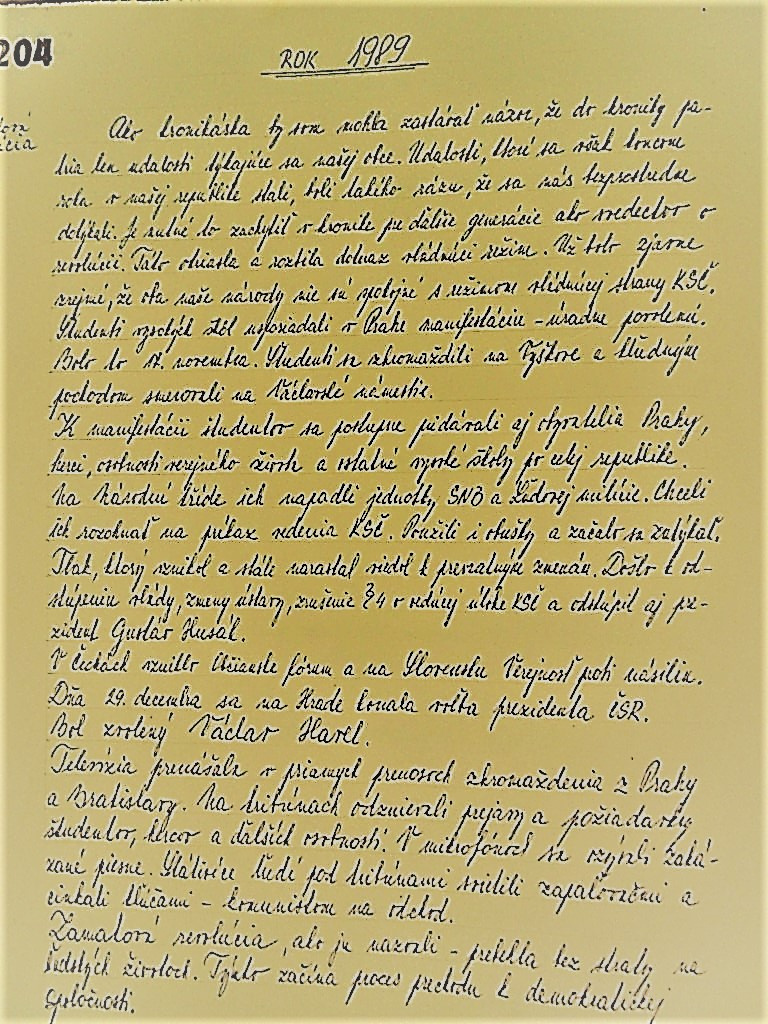 204
ROK 1989
Ako kronikárka by som mohla zastávať názor, že do kroniky pa-
tria len udalosti týkajúce sa našej obce. Udalosti, ktoré sa však koncom
roka v našej republike stali, boli takého rázu, že sa nás bezprostredne
dotýkali. Je nutné to zachytiť v kronike pre ďalšie generácie ako svedectvo o
revolúcii. Táto otriasla a rozbila doteraz vládnúci režim. Už bolo zjavne
zrejmé, že oba naše národy nie sú spokojné s režimom vládnúcej strany KSČ.
Študenti vysokých škôl usporiadali v Prahe manifestáciu - úradne povolenú.
Bolo to 17. novembra. Študenti sa zhromaždili na Vyškove a kľudným
pochodom smerovali na Václavské námestie.
K manifestácii študentov sa postupne pridávali aj obyvatelia Prahy,
herci, osobnosti verejného života a ostatné vysoké školy po celej republike.
Na Národní třídě ich napadli jednotky SNB a Ľudovej milície. Chceli
ich rozohnať na príkaz vedenia KSČ. Použili i obušky a začalo sa zatýkať.
Tlak, ktorý vznikol a stále narastal viedol k prevratným zmenám. Došlo k od-
stúpeniu vlády, zmeny ústavy, zrušenie § 4 o vedúcej úlohe KSČ a odstúpil aj pre-
zident Gustáv Husák.
V Čechách vzniklo Občianske fórum a na Slovensku Verejnosť proti násiliu.
Dňa 29. decembra sa na Hrade konala voľba prezidenta ČSR.
Bol zvolený Václav Havel.
Televízia prenášala v priamych prenosoch zhromaždenia z Prahy
a Bratislavy. Na tribúnach odznievali prejavy a požiadavky
študentov, hercov a ďalších osobností. V mikrofónoch sa ozývali zaká-
zané piesne. Státisíce ľudí pod tribúnami svietili zapaľovačmi a
cinkali kľúčami - komunistom na odchod.
Zamatová revolúcia, ako ju nazvali - prebehla bez straty na
ľudských životoch. Týmto začína proces prechodu k demokratickej
spoločnosti.